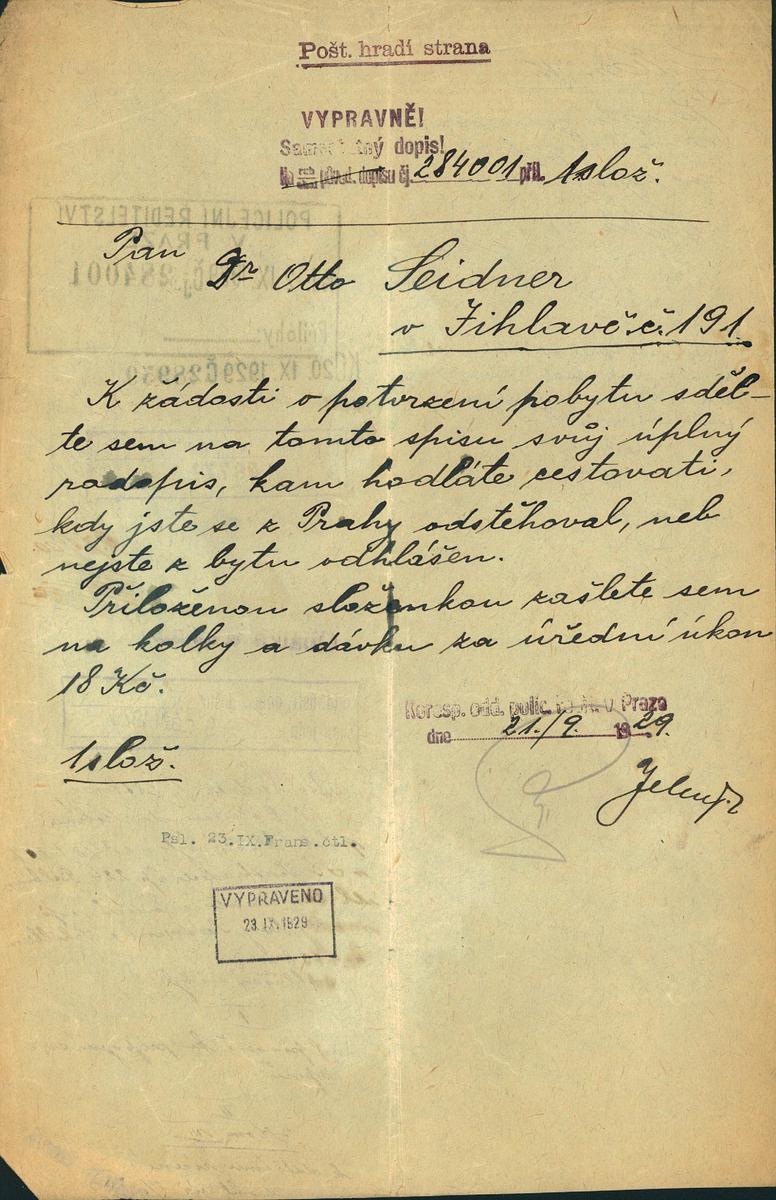 Pošt. hradí strana
VYPRAVNĚ!
Samostatný dopis!
původ. dopisu čj. 284001 příl. 1 slož.
Pan
Dr Otto Seidner
v Jihlavě č. 191
K žádosti o potvrzení pobytu sděl-
te sem na tomto spisu svůj úplný
rodopis, kam hodláte cestovati,
kdy jste se z Prahy odstěhoval, neb
nejste z bytu odhlášen.
Přiloženou složenkou zašlete sem
na kolky a dávku za úřední úkon
18 Kč.
Koresp. odd. polic. v Praze
dne 21./9. 1929.
1 slož.
Psl. 23.IX.Frans.čtl.
VYPRAVENO
23.IX.1929
POLICEJNÍ ŘEDITELSTVÍ
284001
Přílohy:
20. IX 1929